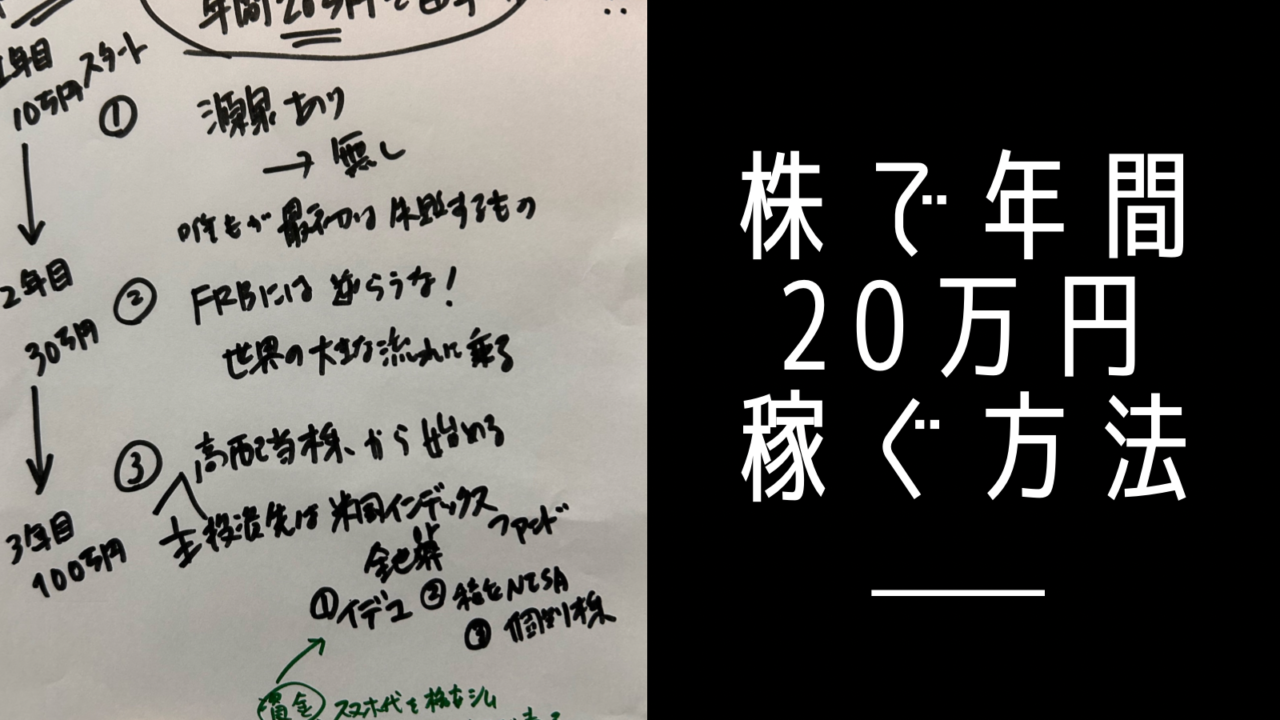 年間20万円
1年目
10万円スタート
① 源泉あり
→ 無し
誰もが最初は失敗するもの
2年目
30万円
② FRBには逆らうな!
世界の大きな流れに乗る
3年目
100万円
③ 高配当株から始める
主投資先は米国インデックス
ファンド
全世界
①イデコ ②積立NISA
③個別株
資金 スマホ代を格安シム
株で年間
20万円
稼ぐ方法